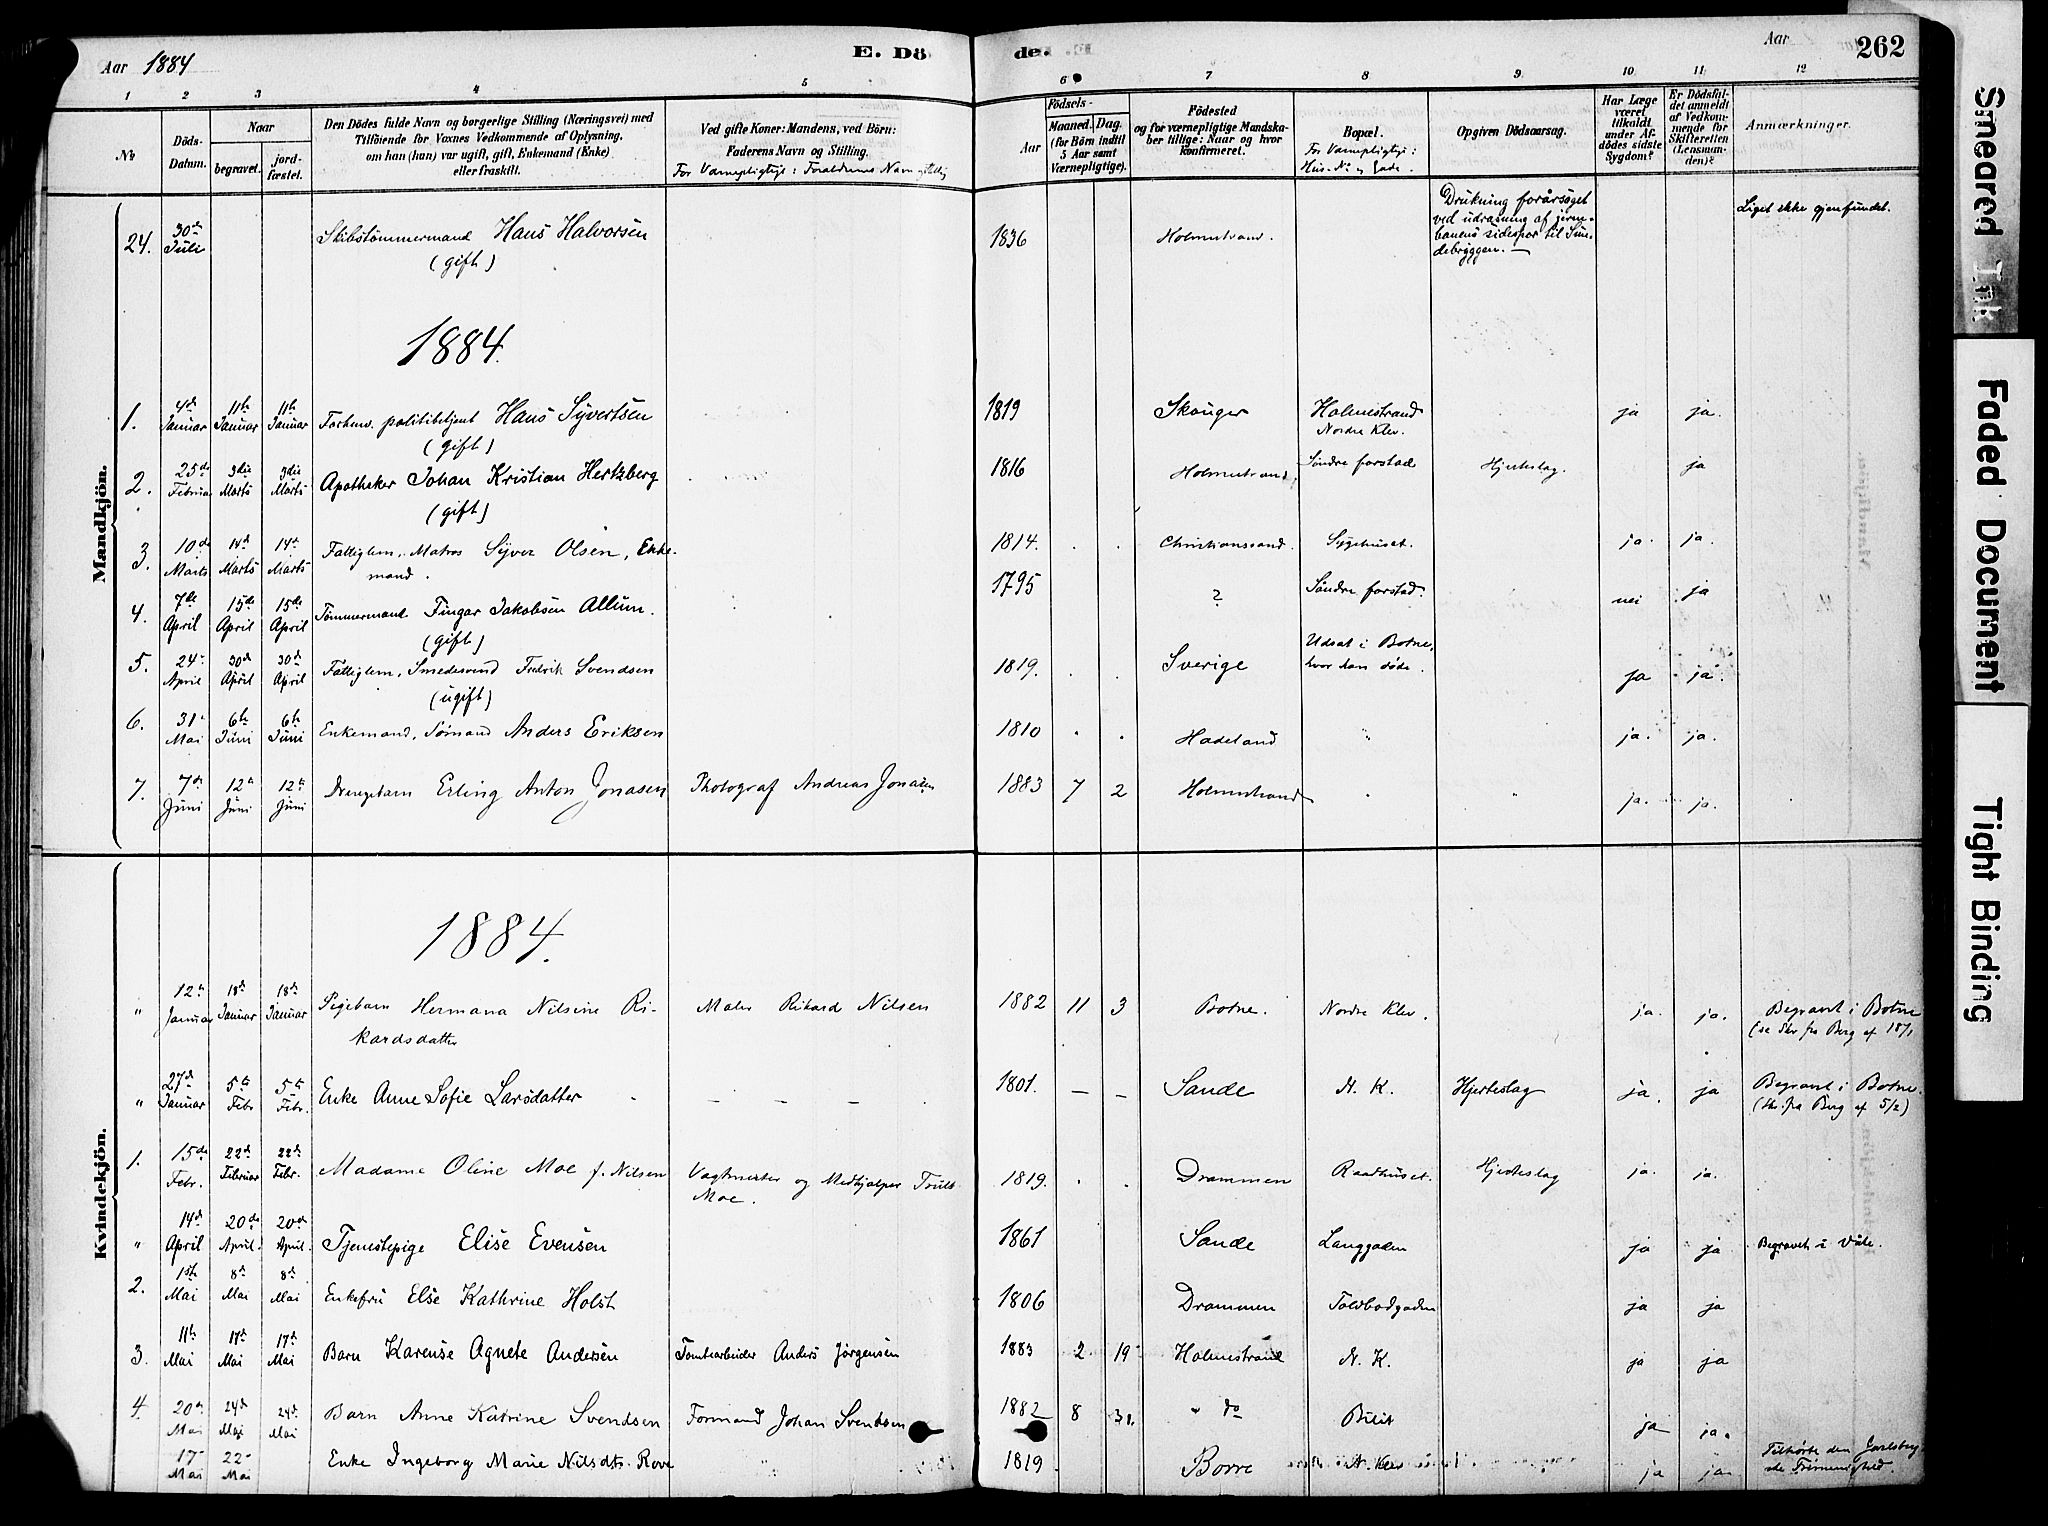 Aar 1884
E. Dö
de.
Aar
262
1 2 3 4 5 6 7 8 9 10 11 12
No
Döds-Datum.
Naar
begravet.
jordfæstet.
Den Dödes fulde Navn og borgerlige Stilling (Næringsvei) med
Tilföiende for Voxnes Vedkommende af Oplysning,
om han (hun) var ugift, gift, Enkemand (Enke)
eller fraskilt.
Ved gifte Koner: Mandens, ved Börn:
Faderens Navn og Stilling.
For Værnepligtige: Forældrenes Navn
Aar
Födsels-
Maaned. Dag.
(for Börn indtil
5 Aar samt
Værnepligtige).
Födested
og for værnepligtige Mandskaber
tillige: Naar og hvor
konfirmeret.
Bopæl.
For Værnepligtige:
Hus-No og Gade.
Opgiven Dödsaarsag.
Har Læge
været
tilkaldt
under Afdödes
sidste
Sygdom?
Er Dödsfaldet
anmeldt
af Vedkommende
for
Skifteretten
(Lensmanden)?
Anmærkninger.
Mandkjön.
24. 30te Juli Skibstömmermand Hans Halvorsen (gift) 1836 Holmestrand. Drukning forårsaget ved udrasning af jernbanens sidespor til Sundebryggen. — Liget ikke gjenfundet.
1884.
1. 4de Januar 11te Januar 11te Januar Forhenv. politibetjent Hans Syvertsen (gift) 1819 Skouger Holmestrand Nordre Klev. ja ja.
2. 25de Februar 3die Marts 3die Marts Apotheker Johan Kristian Hertzberg (gift) 1816 Holmestrand, Søndre forstad Hjerteslag. ja
3. 10de Marts 14de Marts 14de Marts Fattiglem, Matros Syver Olsen, Enkemand. 1814. Christianssand. Sygehuset. ja. ja.
4. 7de April 15de April 15de April Tømmermand Fingar Jakobsen Allum. (gift) 1795 ? Søndre forstad. nei ja
5. 24 April 30te April 30te April Fattiglem, Smedesvend Fredrik Svendsen (ugift) 1819. Sverige Udsat i Botne, hvor han døde. ja ja.
6. 31 Mai 6te Juni 6te Juni Enkemand, Sømand Anders Eriksen 1810 Hadeland " ja. ja.
7. 7de Juni 12te Juni 12te Juni Drengebarn Erling Anton Jonasen Photograf Andreas Jonasen 1883 7 2 Holmestrand ja. ja.
Kvindekjön.
1884.
" 12te Januar 18de Januar 18de Januar Pigebarn Hermana Nilsine Rikardsdatter Maler Rikard Nilsen 1882 11 3 Botne. Nordre Klev. ja. ja. Begravet i Botne (se Skr fra Berg af 18/1
" 27de Januar 5te Febr 5te Febr. Enke Anne Sofie Larsdatter - — — — 1801. — — Sande N. K. Hjerteslag ja. ja Begravet i Botne. (Skr. fra Berg af 5/2)
1. 15de Febr. 22de Februar 22de Febr. Madame Oline Moe f. Nilsen Vagtmester og Medhjælper Truls Moe. 1819. Drammen Raadhuset. Hjerteslag ja. ja.
" 14de April 20de April. 20de April. Tjenestepige Elise Evensen 1861 Sande Langgaden ja ja Begravet i Våle.
2. 1ste Mai 8de Mai 8de Mai Enkefru Else Kathrine Holst 1806 Drammen Toldbodgaden ja ja
3. 11te Mai 17de Mai 17de Mai Barn Karense Agnete Andersen Tomtearbeider Anders Jørgensen 1883 2 19 Holmestrand N. K. ja ja
4. 20de Mai 24de Mai 24de Mai Barn Anne Katrine Svendsen Formand Johan Svendsen 1882 8 31. " do ja ja.
17 Mai 22 Mai Enke Ingeborg Marie Nilsdtr. Rove " 1819 Borre N. Klev ja ja Tilhørte den Jarlsbergske Frimenighed.
Smeared Ink
Faded Document
Tight Binding